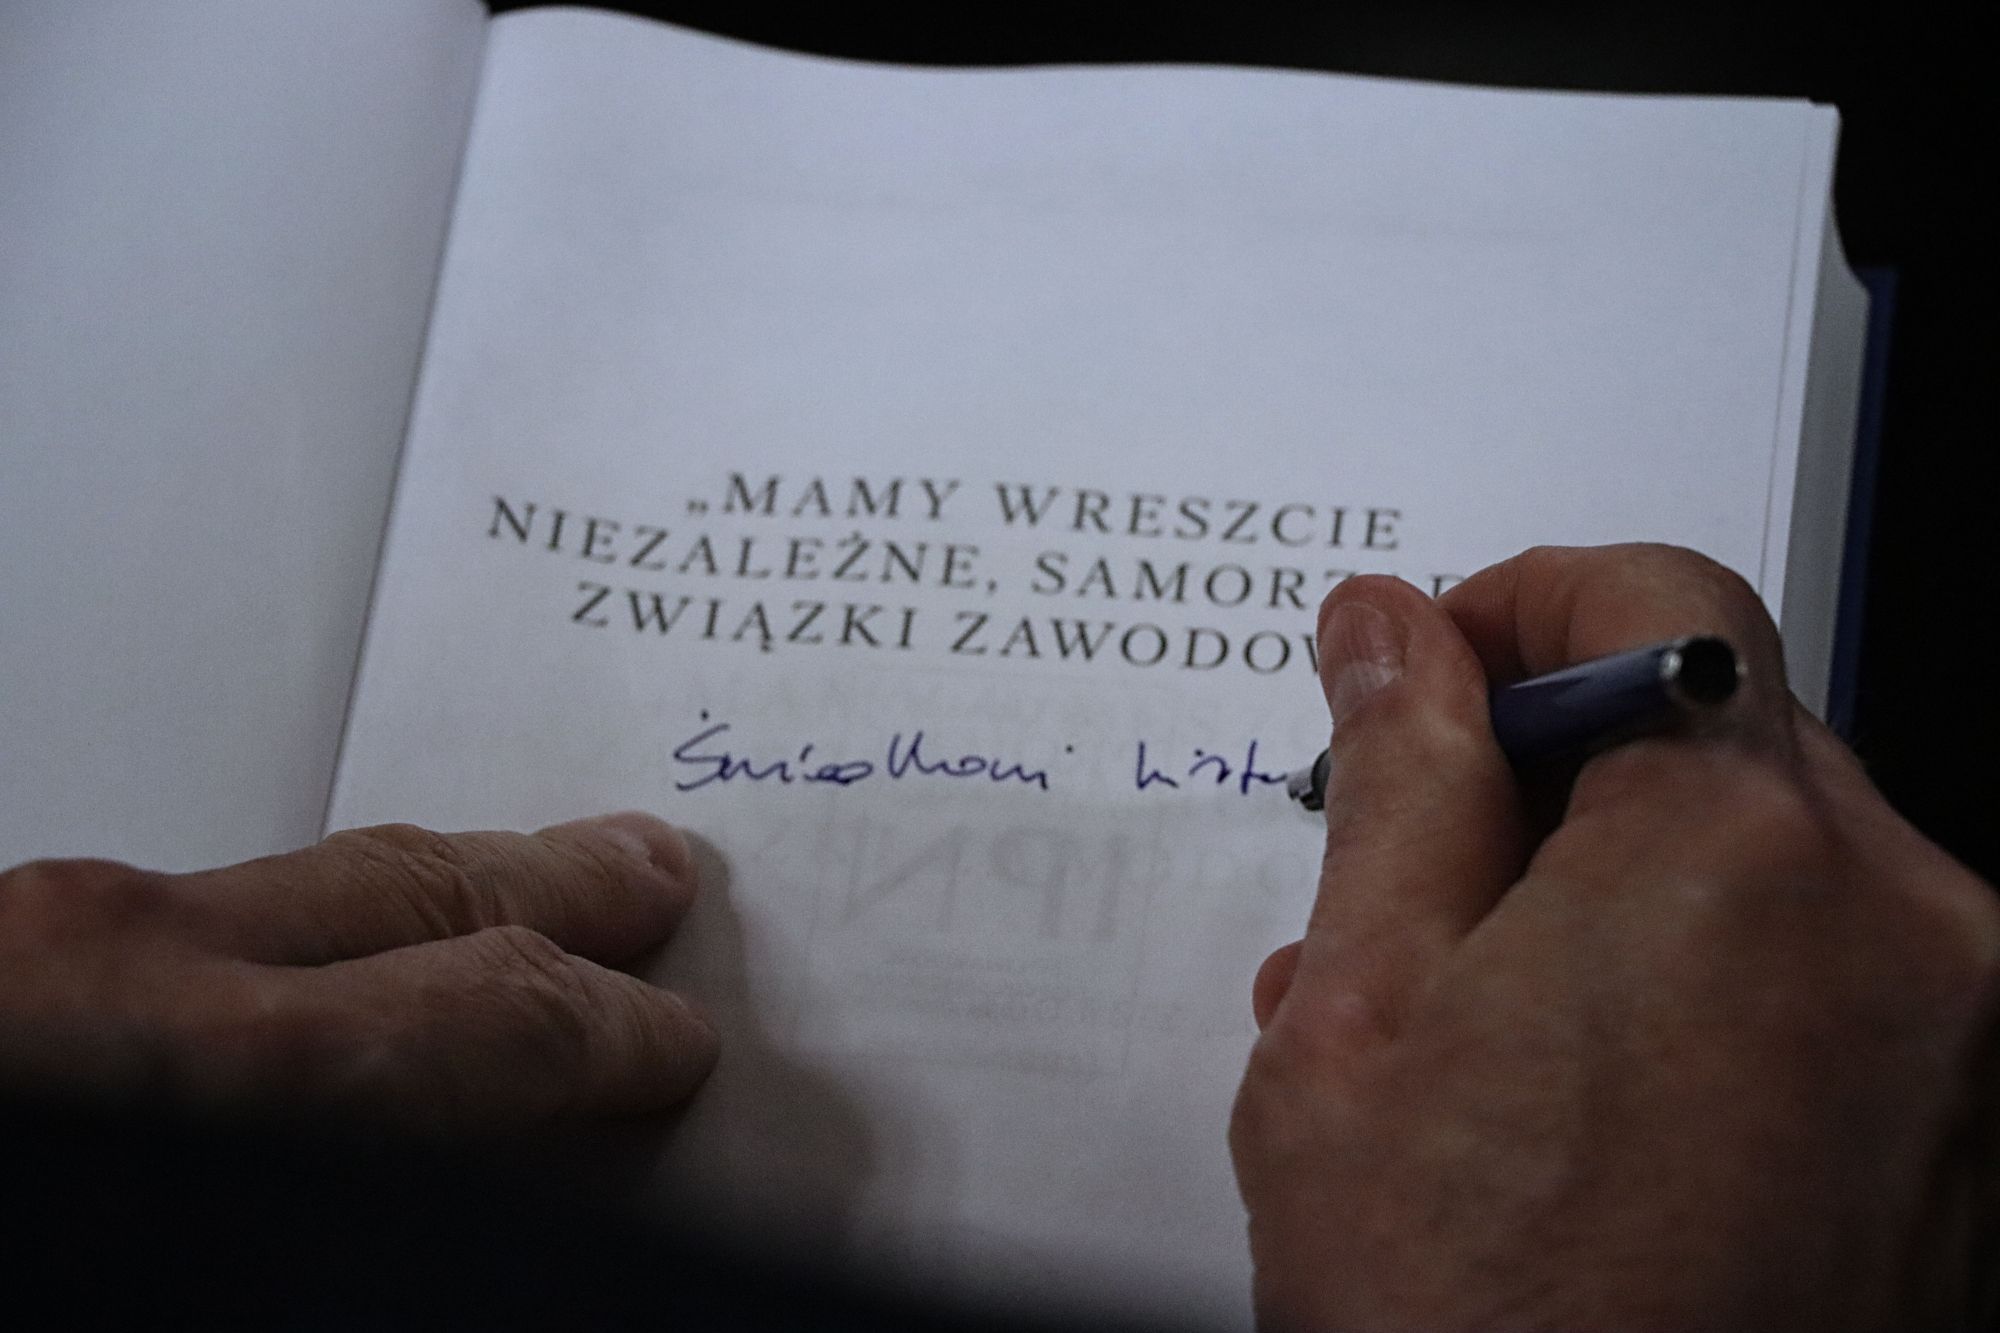 „MAMY WRESZCIE
NIEZALEŻNE, SAMORZĄD
ZWIĄZKI ZAWODOW
Świadkowi histo
IPN